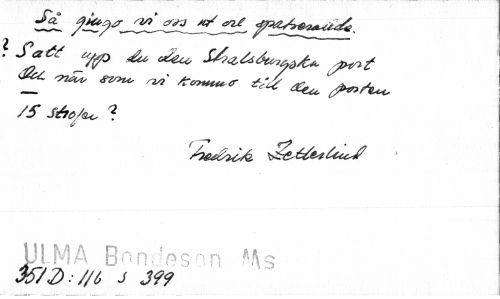 Så gingo vi oss ut att spatserande.
? Satt upp du den Stralsburgska port
Och när som vi kommo till den porten
15 strofer?
Fredrik Zetterlund
ULMA Bondeson Ms
351D: 116 s 399